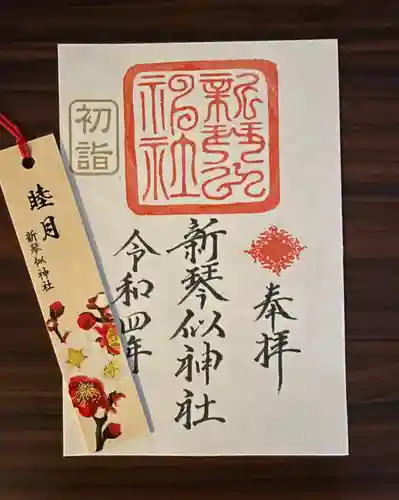 奉拝
新琴似神社
令和四年
新琴似
神社
初詣
睦月
新琴似神社